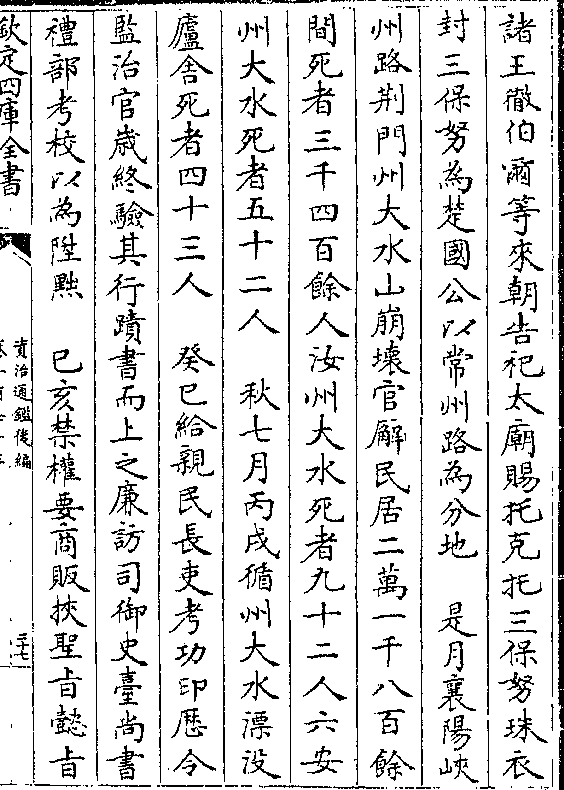 諸王徹伯爾等來朝告祀太廟賜托克托三保努珠衣
封三保努為楚國公以常州路為分地　是月襄陽峽
州路荆門州大水山崩壊官廨民居二萬一千八百餘
間死者三千四百餘人汝州大水死者九十二人六安
州大水死者五十二人　秋七月丙戌循州大水漂没
廬舍死者四十三人　癸巳給親民長吏考功印厯令
監治官歳終驗其行蹟書而上之廉訪司御史臺尚書
禮部考校以為陞黜　已亥禁權要商販挾聖旨懿旨
欽定四庫全書
資治通鑑後編
三七